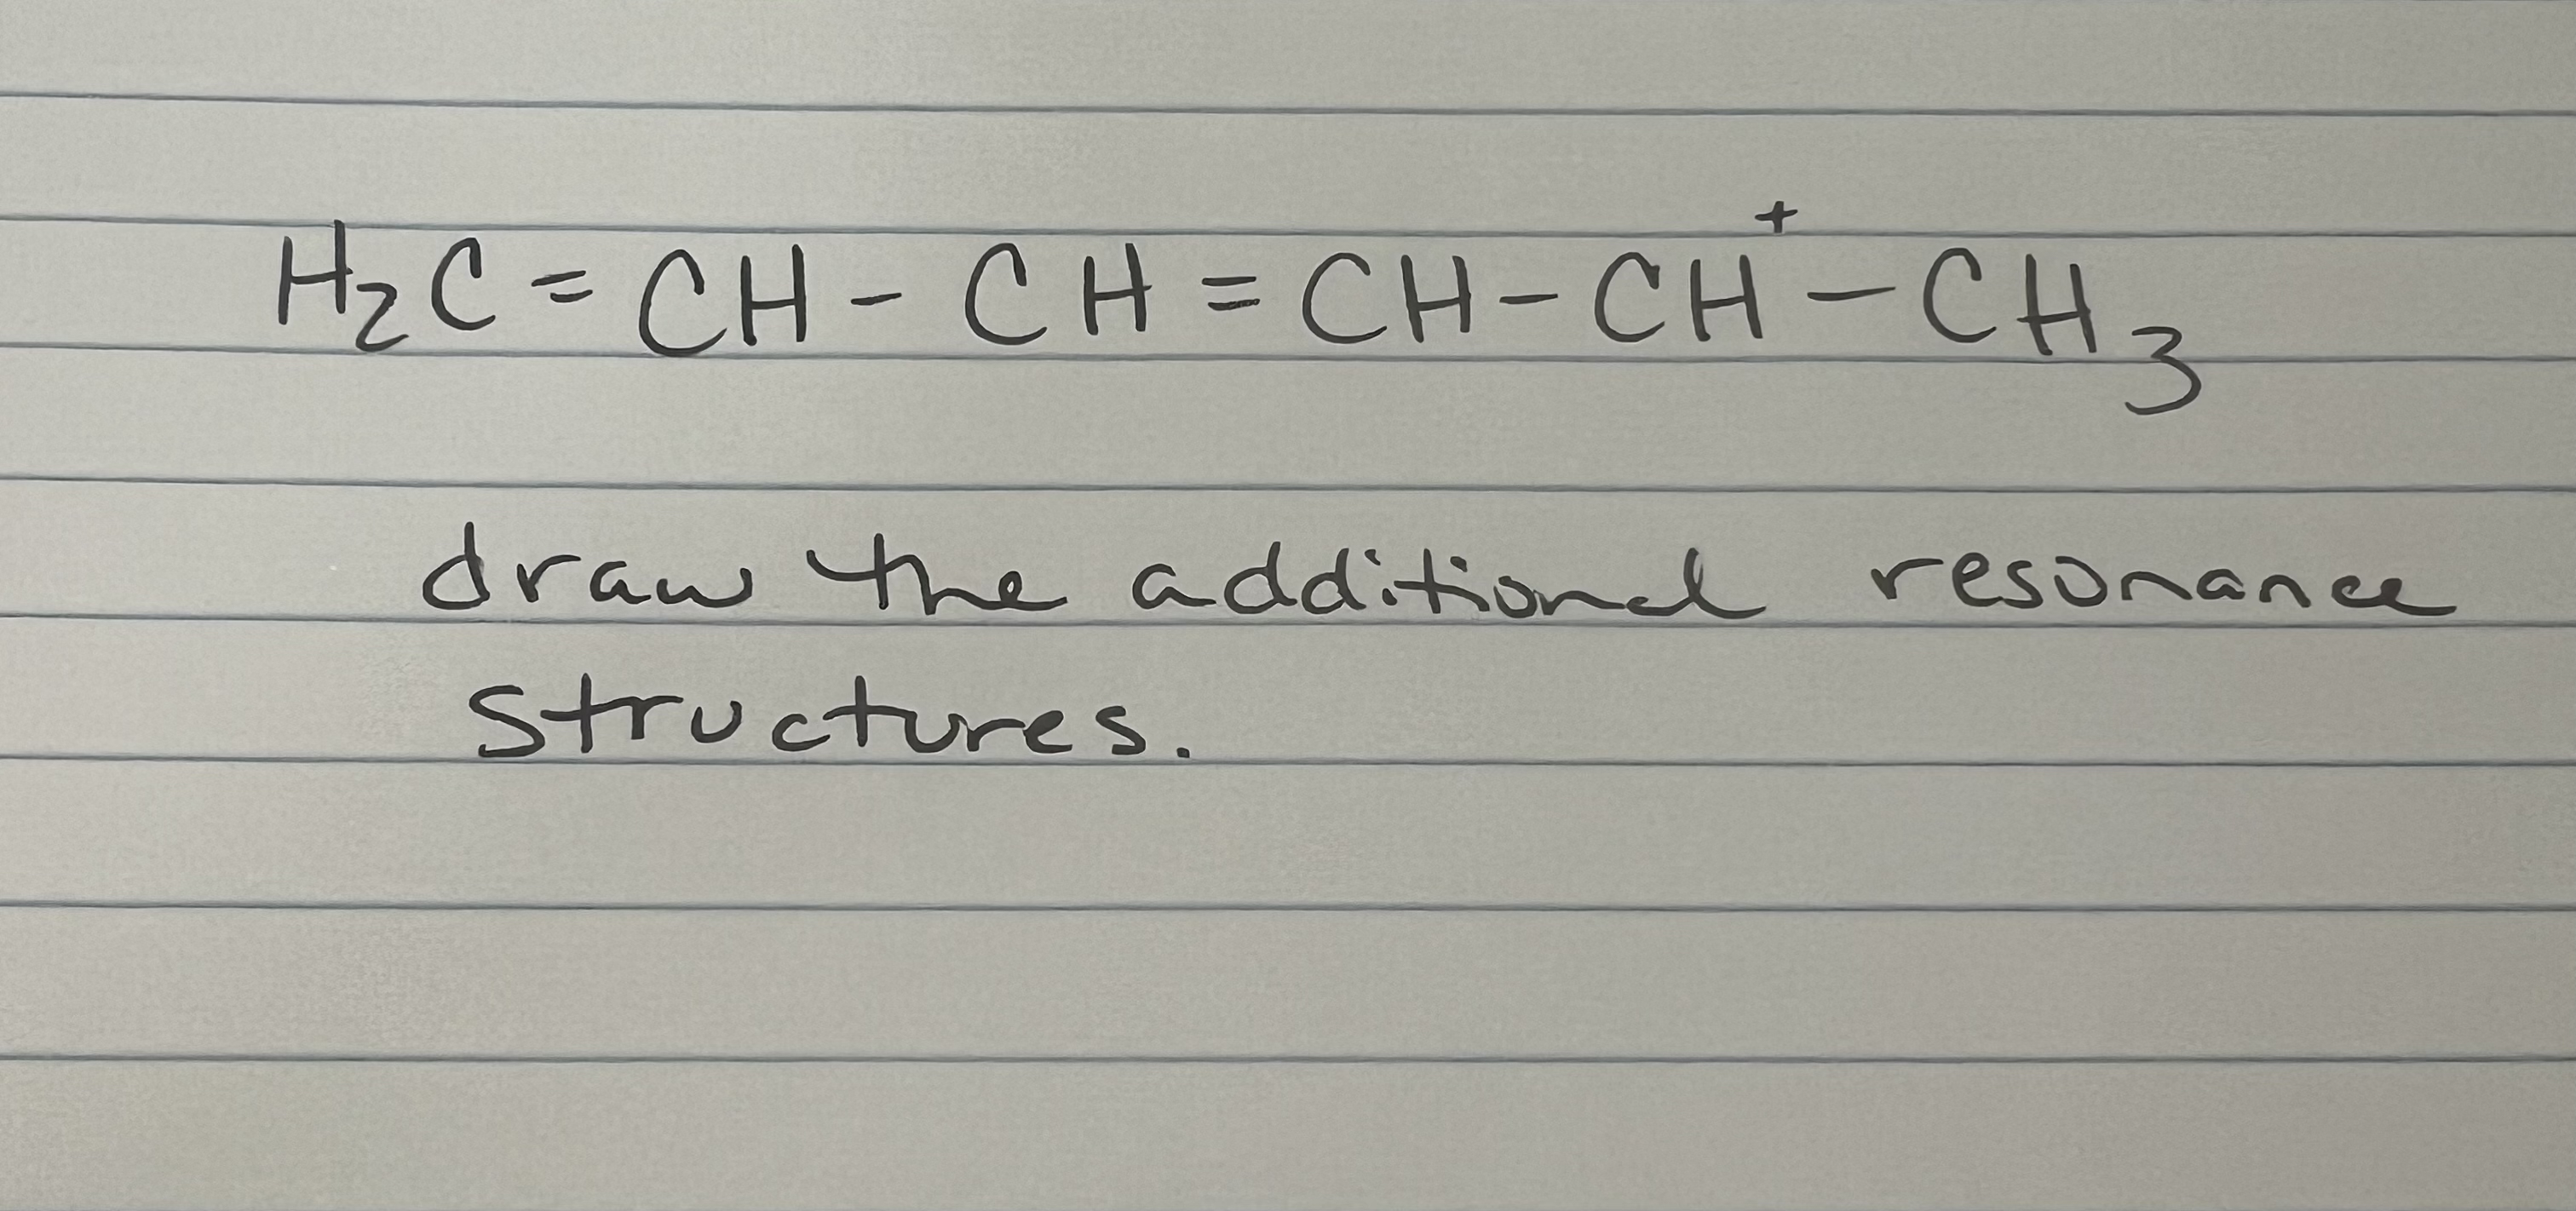 H₂C = CH - CH = CH - CH⁺ - CH₃
draw the additional resonance
structures.